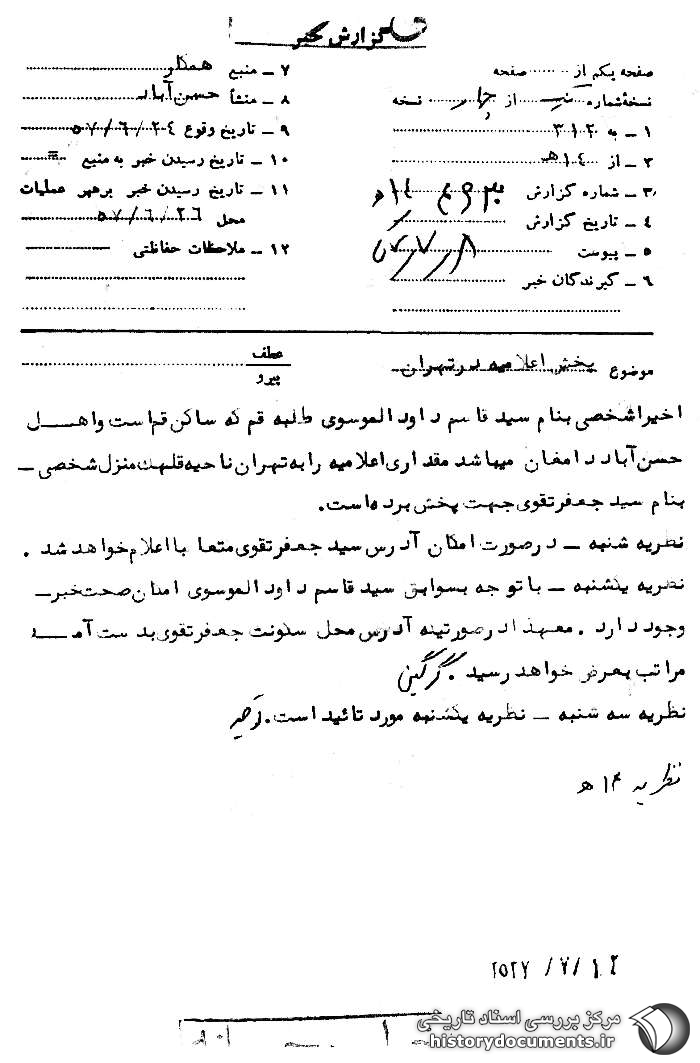 گزارش خبر
صفحه یکم از ........ صفحه
نسخهٔ شماره ........ از چهار نسخه
۱ ـ به ۳۱۲
۲ ـ از ۱۴ هـ
۳ ـ شماره گزارش ۱۴ هـ
۴ ـ تاریخ گزارش
۵ ـ پیوست
۶ ـ گیرندگان خبر
۷ ـ منبع همکار
۸ ـ منشأ حسن‌آباد
۹ ـ تاریخ وقوع ۵۷/۶/۲۴
۱۰ ـ تاریخ رسیدن خبر به منبع =
۱۱ ـ تاریخ رسیدن خبر برهبر عملیات
محل ۵۷/۶/۲۶
۱۲ ـ ملاحظات حفاظتی
موضوع پخش اعلامیه در تهران
عطف
پیرو
اخیرا شخصی بنام سید قاسم داود الموسوی طلبه قم که ساکن قم است و اهل
حسن‌آباد دامغان میباشد مقداری اعلامیه را به تهران ناحیه قلهک منزل شخصی ـ
بنام سید جعفر تقوی جهت پخش برده است.
نظریه شنبه ـ در صورت امکان آدرس سید جعفر تقوی متعاقبا اعلام خواهد شد .
نظریه یکشنبه ـ با توجه بسوابق سید قاسم داود الموسوی امکان صحت خبر ـ
وجود دارد . معهذا در صورتیکه آدرس محل سکونت جعفر تقوی بدست آمد
مراتب بعرض خواهد رسید . گرگین
نظریه سه شنبه ـ نظریه یکشنبه مورد تائید است.
نظریه ۱۴ هـ
۲۵۳۷ /۷/ ۱۲
مرکز بررسی اسناد تاریخی
historydocuments.ir